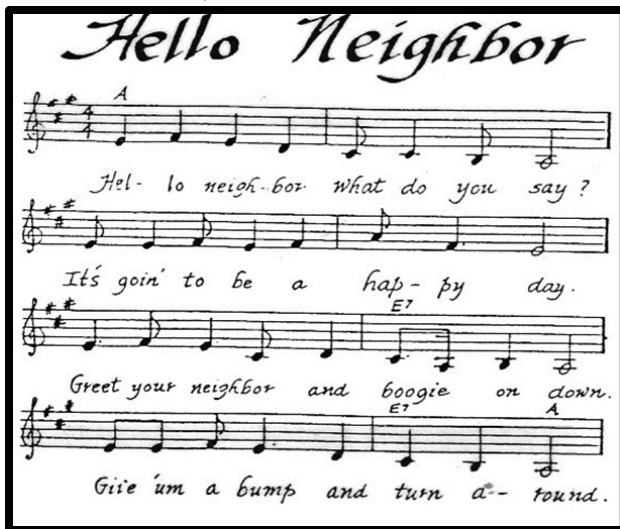 Hello Neighbor
A
4
4
Hel- lo neigh-bor what do you say ?
It's goin' to be a hap- py day.
E7
Greet your neighbor and boogie on down.
E7 A
Giie 'um a bump and turn a-- round.